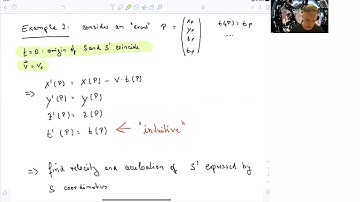 Example 2: consider an "event" P = ( xp yp zp tp ) t(P) = tp
...
t = 0: origin of S and S' coincide
v⃗ = vx
⇒ x'(P) = x(P) - v · t(P)
y'(P) = y(P)
z'(P) = z(P)
t'(P) = t(P) ← "intuitive"
⇒ find velocity and acceleration of S' expressed by
S coordinates